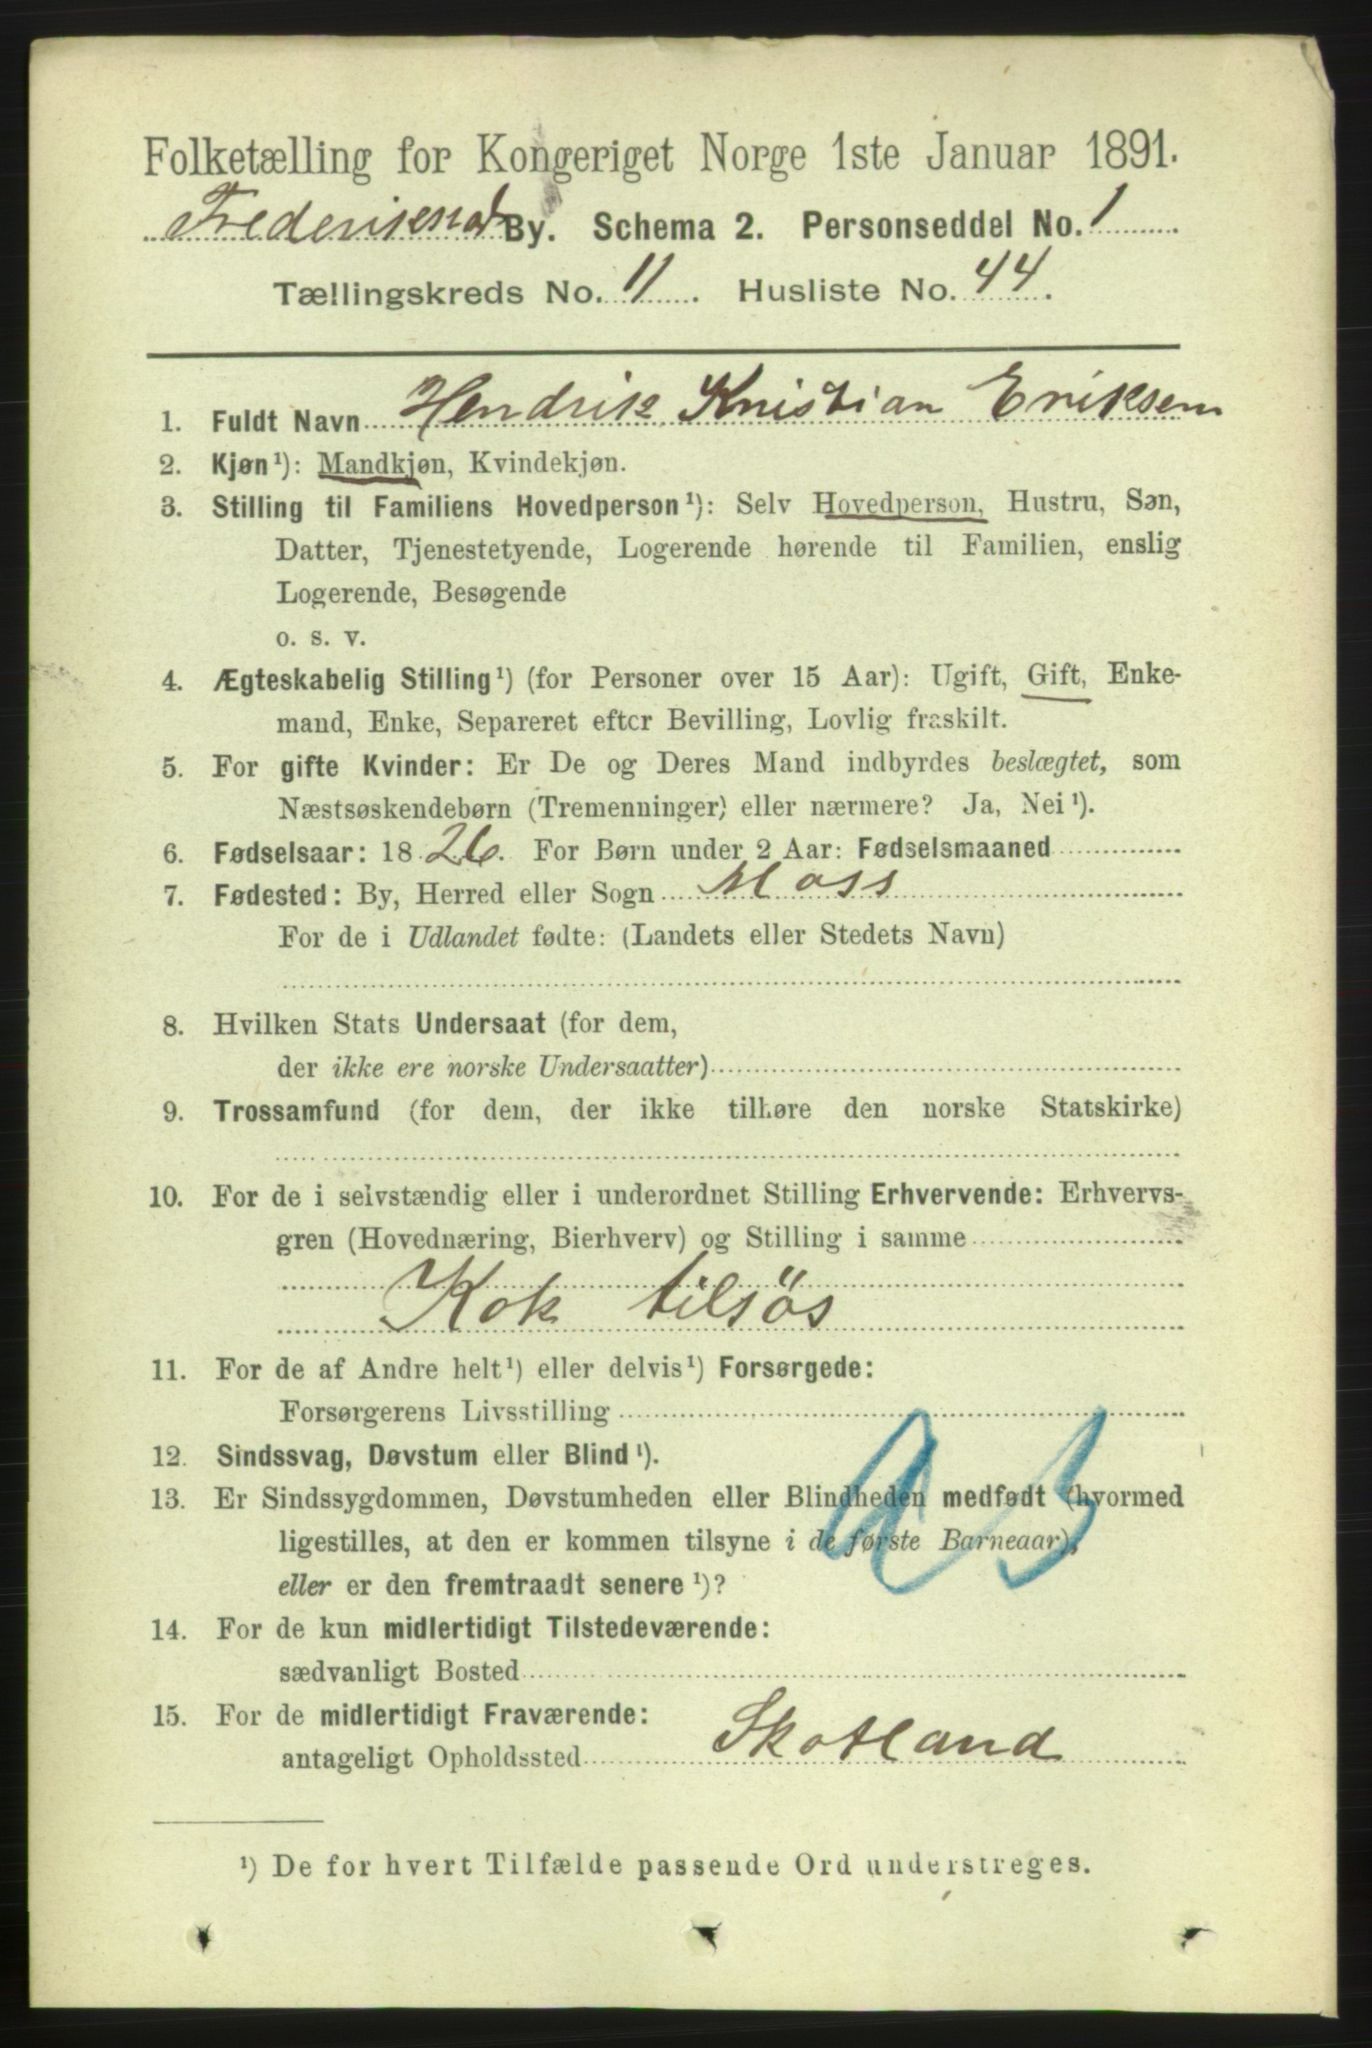 Folketælling for Kongeriget Norge 1ste Januar 1891.
Frederiksstad By. Schema 2. Personseddel No. 1
Tællingskreds No. 11. Husliste No. 44.
1. Fuldt Navn Hendrik Kristian Eriksen
2. Kjøn ¹): Mandkjøn, Kvindekjøn.
3. Stilling til Familiens Hovedperson ¹): Selv Hovedperson, Hustru, Søn,
Datter, Tjenestetyende, Logerende hørende til Familien, enslig
Logerende, Besøgende
o. s. v.
4. Ægteskabelig Stilling ¹) (for Personer over 15 Aar): Ugift, Gift, Enke-
mand, Enke, Separeret efter Bevilling, Lovlig fraskilt.
5. For gifte Kvinder: Er De og Deres Mand indbyrdes beslægtet, som
Næstsøskendebørn (Tremenninger) eller nærmere? Ja, Nei ¹).
6. Fødselsaar: 1826. For Børn under 2 Aar: Fødselsmaaned
7. Fødested: By, Herred eller Sogn Moss
For de i Udlandet fødte: (Landets eller Stedets Navn)
8. Hvilken Stats Undersaat (for dem,
der ikke ere norske Undersaatter)
9. Trossamfund (for dem, der ikke tilhøre den norske Statskirke)
10. For de i selvstændig eller i underordnet Stilling Erhvervende: Erhvervs-
gren (Hovednæring, Bierhverv) og Stilling i samme
Kok tilsøs
11. For de af Andre helt ¹) eller delvis ¹) Forsørgede:
Forsørgerens Livsstilling
12. Sindssvag, Døvstum eller Blind ¹).
13. Er Sindssygdommen, Døvstumheden eller Blindheden medfødt (hvormed
ligestilles, at den er kommen tilsyne i de første Barneaar),
eller er den fremtraadt senere ¹)?
14. For de kun midlertidigt Tilstedeværende:
sædvanligt Bosted
15. For de midlertidigt Fraværende:
antageligt Opholdssted Skotland
¹) De for hvert Tilfælde passende Ord understreges.